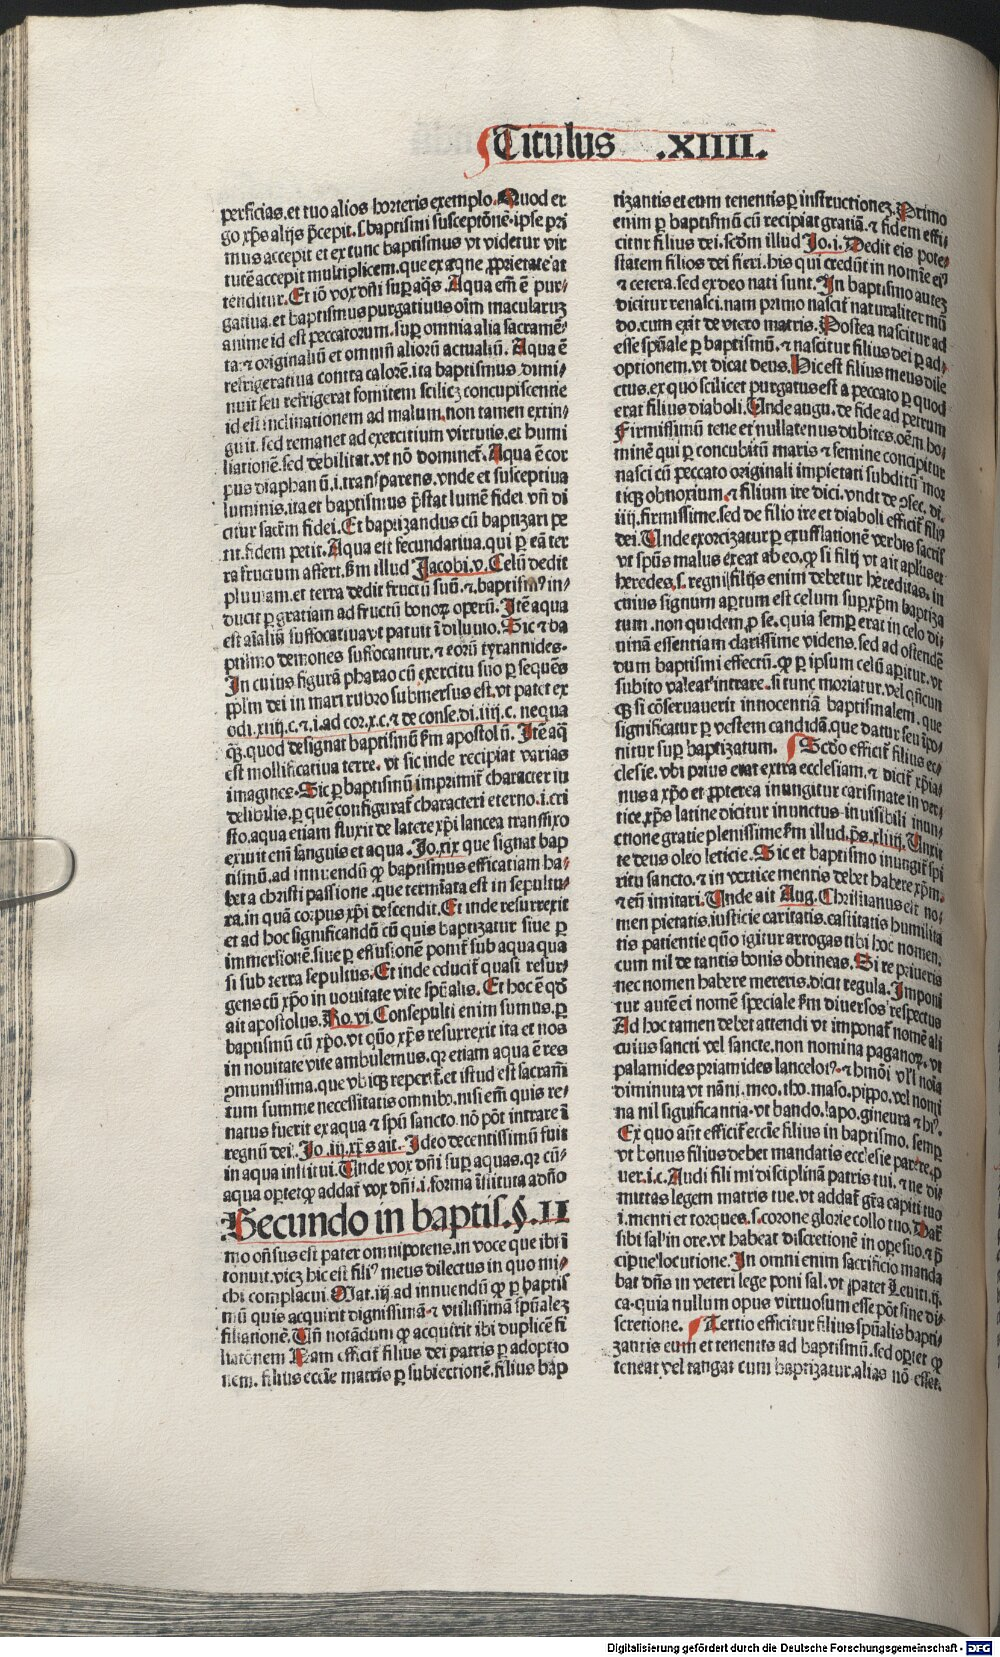 Titulus .XIIII.
perficias.et tuo alios horteris exemplo. Quod er
go xp̄s alijs p̄cepit.s.baptismi susceptōnē.ipse pri
mus accepit et ex tunc baptismus vt videtur vir
tutē accepit multiplicem.que ex aque ꝓprietate at
tenditur. Et iō vox dn̄i sup aq̄s. Aqua em̄ ē pur⸗
gatiua.et baptismus purgatiuus oīm macularuꝫ
anime id est peccatorum.sup omnia alia sacramē⸗
ta:⁊ originaliū et omniū aliorū actualiū. Aqua ē
refrigeratiua contra calorē.ita baptismus dimi⸗
nuit seu refrigerat fomitem scilicꝫ concupiscentie
id est inclinationem ad malum.non tamen extin⸗
guit.sed remanet ad exercitium virtutis.et humi
liationē.sed debilitat.vt nō dominet᷑. Aqua ē cor
pus diaphanū.i.transparens.vnde et susceptiua
luminis.ita et baptismus p̄stat lumē fidei vn̄ di
citur sacrm̄ fidei. Et baptizandus cū baptizari pe
tit.fidem petit. Aqua est fecundatiua.qui ꝑ eā ter
ra fructum affert.ẜm illud Jacobi.v. Celū dedit
pluuiam.et terra dedit fructū suū.⁊.baptismꝰ in⸗
ducit ꝑ gratiam ad fructū bonoꝝ operū. Itē aqua
est aīaliū suffocatiua vt patuit ī diluuio. Sic ⁊ ba
ptismo demones suffocantur.⁊ eorū tyrannides.
In cuius figurā pharao cū exercitu suo ꝑ sequēs
ppl̄m dei in mari rubro submersus est.vt patet ex
odi.xiiij.c.⁊.i.ad cor.x.c.⁊ de conse.di.iiij.c. nequa
ꝙ̄.quod designat baptismū ẜm apostolū. Itē aq̄
est mollificatiua terre. vt sic inde recipiat varias
imagines. Sic ꝑ baptismū imprimit᷑ character in
delibilis.ꝑ quē configurat᷑ characteri eterno.i.cri
sto.aqua etiam fluxit de latere xp̄i lancea transfixo
exiuit eni᷑ sanguis et aqua. Jo.xix que signat bap
tismū.ad innuendū ꝙ baptismus efficatiam ha⸗
bet a christi passione.que termīata est in sepultu⸗
ra.in quā corpus xp̄i descendit. Et inde resurrexit
et ad hoc significandū cū quis baptizatur siue ꝑ
immersionē.siue ꝑ effusionē ponit᷑ sub aqua qua
si sub terra sepultus. Et inde educit᷑ quasi resur⸗
gens cū xp̄o in nouitate vite spūalis. Et hoc ē qd̄
ait apostolus. Ro.vi. Consepulti enim sumus.ꝑ
baptismū cū xp̄o.vt quō xp̄s resurrexit ita et nos
in nouitate vite ambulemus.qꝛ etiam aqua ē res
ꝯmunissima.que vbiqꝫ reperit᷑.et istud est sacram̄
tum summe necessitatis omnibꝰ.nisi em̄ quis re⸗
natus fuerit ex aqua ⁊ spū sancto nō pōt intrare ī
regnū dei. Jo.iij.xp̄s ait. Ideo decentissimū fuit
in aqua institui. Unde vox dn̄i sup aquas.qꝛ cū⸗
aqua oꝑtet ꝙ addat᷑ vox dn̄i.i.forma īstituta a dn̄o
Secundo in baptis.§.II
mo on̄sus est pater omnipotens.in voce que ibi ī
tonuit.vicꝫ hic est filiꝰ meus dilectus in quo mi⸗
chi complacui. Mat.iij.ad innuendū ꝙ ꝑ baptis
mū quis acquirit dignissimā.⁊ vtilissimā spūaleꝫ
filiationē. Un̄ notādum ꝙ acquirit ibi duplicē fi
liatōnem Nam efficit᷑ filius dei patris ꝑ adoptio
nem. filius eccīe matris ꝑ subiectionē.filius bap
tizantis et eum tenentis ꝑ instructioneꝫ. Primo
enim ꝑ baptismū cū recipiat gratiā.⁊ fidem effi⸗
citur filius dei.scd̄m illud Jo.i. Dedit eis pote⸗
statem filios dei fieri.his qui credūt in nomīe eiꝰ
⁊ cetera.sed ex deo nati sunt. In baptismo auteꝫ
dicitur renasci.nam primo nascit᷑ naturaliter mū
do.cum exit de vtero matris. Postea nascitur ad
esse spūale ꝑ baptismū.⁊ nascitur filius dei ꝑ ad⸗
optionem.vt dicat deus. Hic est filius meus dile
ctus.ex quo scilicet purgatus est a peccato ꝑ quod
erat filius diaboli. Unde augu.de fide ad petrum
Firmissimū tene et nullatenus dubites.oēm ho⸗
minē qui ꝑ concubitū maris ⁊ femine concipitur
nasci cū peccato originali impietati subditū mor
tiqꝫ obnoxium.⁊ filium ire dici.vndt de ꝯsec.di.
iiij.firmissime.sed de filio ire et diaboli efficit᷑ filiꝰ
dei. Unde exorcizatur ꝑ exufflationē verbis sacris
vt spūs malus exeat ab eo.ꝙ si filij vt ait apl̄us et
heredes.s.regni filijs enim debetur hereditas. in
cuius signum aꝑtum est celum sup xp̄m baptiza
tum.non quidem ꝓ se.quia semꝑ erat in celo di
uinā essentiam clarissime videns.sed ad ostendē
dum baptismi effectū.ꝙ ꝑ ipsum celū aꝑitur.vt
subito valeat intrare.si tunc moriatur.vel qn̄cun
qꝫ si cōseruauerit innocentiā baptismalem.que
significatur ꝑ vestem candidā.que datur seu ipo⸗
nitur sup baptizatum. Scd̄o efficit᷑ filius ec⸗
clesie.vbi prius erat extra ecclesiam.⁊ dicit᷑ xp̄ia⸗
nus a xp̄o et ꝓpterea inungitur carismate in ver⸗
tice.xp̄s latine dicitur inunctus.inuisibili inun⸗
ctione gratie plenissime ẜm illud.ps.xliiij. Unxit
te deus oleo leticie. Sic et baptismo inungit᷑ spi
ritu sancto.⁊ in vertice mentis debet habere xp̄m.
⁊ eū imitari. Unde ait Aug. Christianus est no⸗
men pietatis.iusticie caritatis.castitatis humilita
tis patientie quō igitur arrogas tibi hoc nomen.
cum nil de tantis bonis obtineas. Si te priueris
nec nomen habere mereris.dicit regula. Imponi
tur autē ei nomē speciale ẜm diuersos respectus
Ad hoc tamen debet attendi vt imponat᷑ nomē ali
cuius sancti vel sancte.non nomina paganoꝝ.vt
palamides priamides lancelotꝰ.⁊ hmōi vl̓ noīa
diminuta vt nāni.meo.tho.maso.pippo.vel nomi
na nil significantia.vt bando.lapo.gineura ⁊ hiꝰ.
Ex quo aūt efficit᷑ eccīe filius in baptismo. semꝑ
vt bonus filius debet mandatis ecclesie parere.ꝓ
uer.i.c. Audi fili mi disciplinā patris tui.⁊ ne di
mittas legem matris tue.vt addat᷑ gr̄a capiti tuo
i.menti et torques.s.corone glorie collo tuo. Dat᷑
sibi sal in ore.vt habeat discretionē in oꝑe suo.⁊ p̄
cipue locutione. In omni enim sacrificio manda
bat dn̄s in veteri lege poni sal.vt patet Leuiti.ij.
ca.quia nullum opus virtuosum esse pōt sine di⸗
scretione. Tertio efficitur filius spūalis bapti⸗
zantis eum et tenentis ad baptismū.sed oꝑtet ꝙ
teneat vel tangat cum baptizatur.alias nō esset.
Digitalisierung gefördert durch die Deutsche Forschungsgemeinschaft - DFG